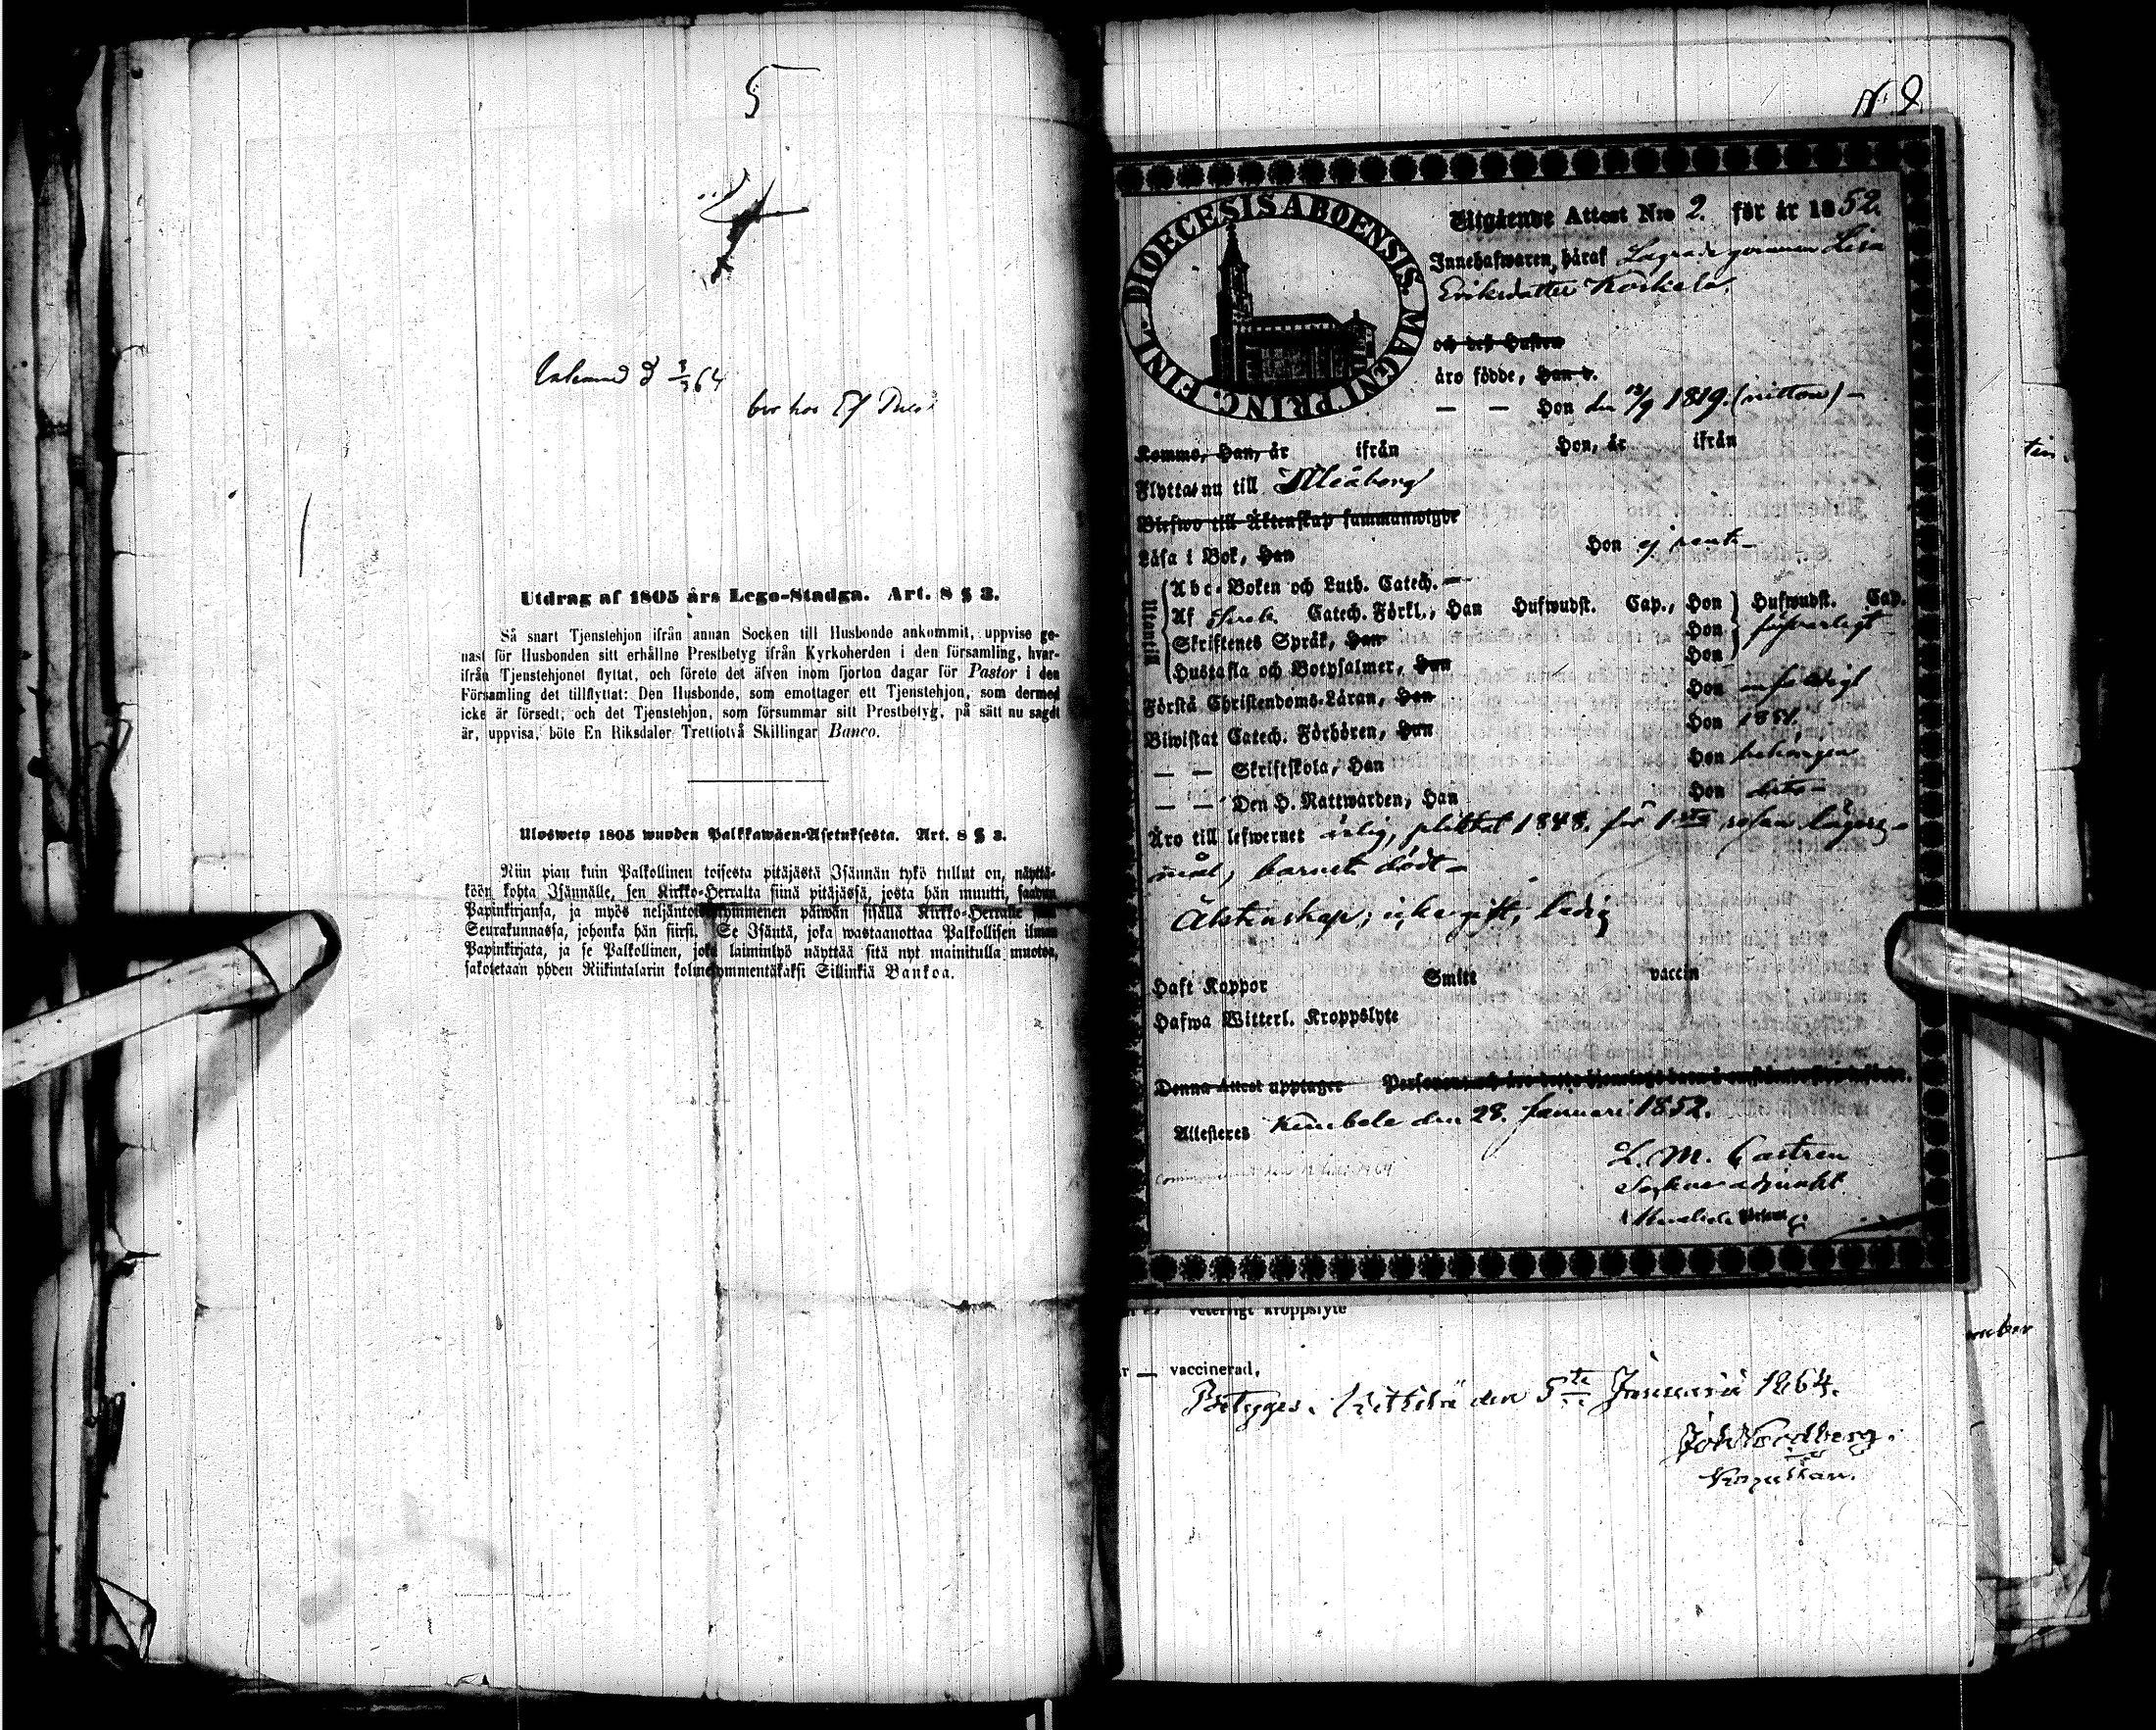 5
bor hos
Utdrag af 1805 års Lego-Stadga. Art. 8 § 3.
Så snart Tjenstehjon ifrån annan Socken till Husbonde ankommit, uppvise ge-
nast för Husbonden sitt erhållne Prestbetyg ifrån Kyrkoherden i den församling, hvar-
ifrån Tjenstehjonet flyttat, och förete det äfven inom fjorton dagar för Pastor i den
Församling det tillflyttat: Den Husbonde, som emottager ett Tjenstehjon, som dermed
icke är försedt, och det Tjenstehjon, som försummar sitt Prestbetyg, på sätt nu sagdt
är, uppvisa, böte En Riksdaler Trettiotvå Skillingar Banco.
Ulosweto 1805 wuoden Palkkawäen-Asetuksesta. Art. 8 § 3.
Niin pian kuin Palkollinen toisesta pitäjästä Isännän tykö tullut on, näyttä-
köön kohta Isännälle, sen Kirkko-Herralta siinä pitäjässä, josta hän muutti, saadun
Papinkirjansa, ja myös neljäntoistakymmenen päiwän sisällä Kirkko-Herralle
Seurakunnassa, johonka hän siirsi. Se Isäntä, joka wastaanottaa Palkollisen ilman
Papinkirjata, ja se Palkollinen, joka laiminlyö näyttää sitä nyt mainitulla muotoa,
sakotetaan yhden Riikintalarin kolmekymmentäkaksi Sillinkiä Bankoa.
N. 2
FINL. DIOECESIS ABOENSIS. MAGNI PRINC.
Utgående Attest Nro 2. för år 1852.
Innehafwaren häraf Lisa
Eriksdotter Koskela,
och deß Hustru
äro födde, Han d.
— — Hon den 13/9 1819. (nitton) —
Komme, Han, år ifrån Hon, år ifrån
Flyttas nu till Uleåborg
Blefwo till Äktenskap sammanwigde
Läsa i Bok, Han Hon ej rent —
Utantill
Abc-Boken och Luth. Catech. —
Af Catech. Förkl., Han Hufwudst. Cap., Hon Hufwudst. Cap.
Skriftenes Språk, Han Hon försvarligt
Hustafla och Botpsalmer, Han Hon
Första Christendoms-Läran, Han Hon enfaldigt
Biwistat Catech. Förhören, Han Hon 1851.
— — Skriftskola, Han Hon behörigen
— — Den H. Nattwarden, Han Hon dito —
Äro till lefwernet ärlig, pliktat 1848. för 1sta resan lägers-
mål, barnet dödt —
Äktenskap; icke gift, ledig
Haft Koppor Smitt vaccin
Hafwa Witterl. Kroppslyte
Denna Attest upptager
Attesteres Kembele den 28. Januari 1852.
L. M. Castrén
Sockne adjunkt
veterligt kroppslyte
r — vaccinerad,
Betygas. Kittilä den 5te Januarii 1864.
Joh Nordberg.